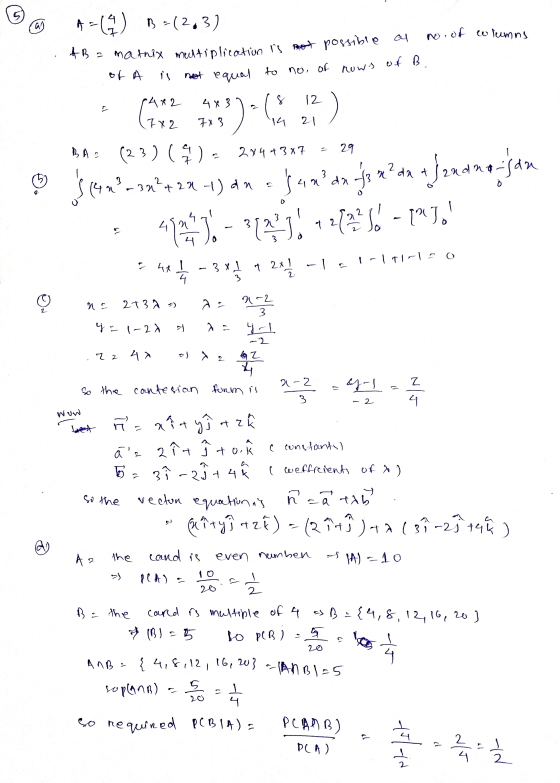 5 (a) A = (4 7) B = (2, 3)
AB = matrix multiplication is possible as no. of columns
of A is equal to no. of rows of B.
= (4×2 4×3 7×2 7×3) = (8 12 14 21)
BA = (2 3) (4 7) = 2×4+3×7 = 29
(b) ∫₀¹ (4x³ - 3x² + 2x - 1) dx = ∫₀¹ 4x³ dx - ∫₀¹ 3x² dx + ∫₀¹ 2x dx - ∫₀¹ dx
= 4[x⁴/4]₀¹ - 3[x³/3]₀¹ + 2[x²/2]₀¹ - [x]₀¹
= 4×1/4 - 3×1/3 + 2×1/2 - 1 = 1-1+1-1 = 0
(c) x = 2+3λ ⇒ λ = x-2/3
y = 1-2λ ⇒ λ = y-1/-2
z = 4λ ⇒ λ = z/4
So the cartesian form is x-2/3 = y-1/-2 = z/4
Now
r⃗ = xî + yĵ + zk̂
a⃗ = 2î + ĵ + 0.k̂ (constants)
b⃗ = 3î - 2ĵ + 4k̂ (coefficients of λ)
So the vector equation is r⃗ = a⃗ + λb⃗
⇒ (xî + yĵ + zk̂) = (2î + ĵ) + λ (3î - 2ĵ + 4k̂)
(d) A = the card is even number ⇒ |A| = 10
⇒ P(A) = 10/20 = 1/2
B = the card is multiple of 4 ⇒ B = {4, 8, 12, 16, 20}
⇒ |B| = 5 So P(B) = 5/20 = 1/4
A∩B = {4, 8, 12, 16, 20} ⇒ |A∩B| = 5
So P(A∩B) = 5/20 = 1/4
So required P(B|A) = P(A∩B)/P(A) = 1/4 / 1/2 = 2/4 = 1/2